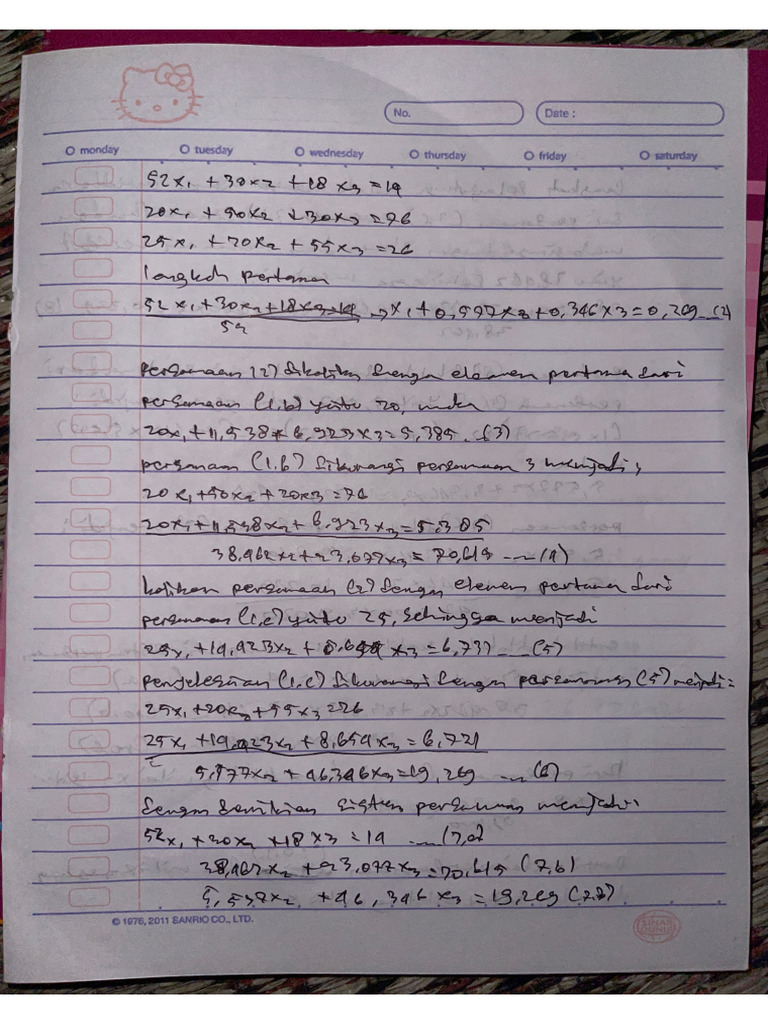 No.
Date :
monday tuesday wednesday thursday friday saturday
52x₁ + 30x₂ + 18x₃ = 14
20x₁ + 50x₂ + 30x₃ = 76
25x₁ + 20x₂ + 55x₃ = 26
langkah pertama
52x₁ + 30x₂ + 18x₃ = 14 → x₁ + 0,577x₂ + 0,346x₃ = 0,269 ...(2)
52
persamaan (2) dikalikan dengan elemen pertama dari
persamaan (1,b) yaitu 20, maka
20x₁ + 11,538 + 6,923x₃ = 5,385 ..(3)
persamaan (1.b) dikurangi persamaan 3 menjadi;
20x₁ + 50x₂ + 20x₃ = 76
20x₁ + 11,538x₂ + 6,923x₃ = 5,385
38,462x₂ + 23,077x₃ = 70,615 ...(4)
kalikan persamaan (2) dengan elemen pertama dari
persamaan (1,c) yaitu 25, sehingga menjadi
25x₁ + 14,423x₂ + x₃ = 6,731 ...(5)
(1,c) dikurangi dengan persamaan (5) =
25x₁ + 20x₂ + 55x₃ = 26
25x₁ + 14,423x₂ + 8,654x₃ = 6,721
5,577x₂ + 46,346x₃ = 19,269 ...(6)
dengan demikian sistem persamaan menjadi:
52x₁ + 30x₂ + 18x₃ = 14 ...(7,a)
38,462x₂ + 23,077x₃ = 70,615 (7,b)
5,537x₂ + 46,346x₃ = 19,269
© 1976, 2011 SANRIO CO., LTD.
SINAR DUNIA